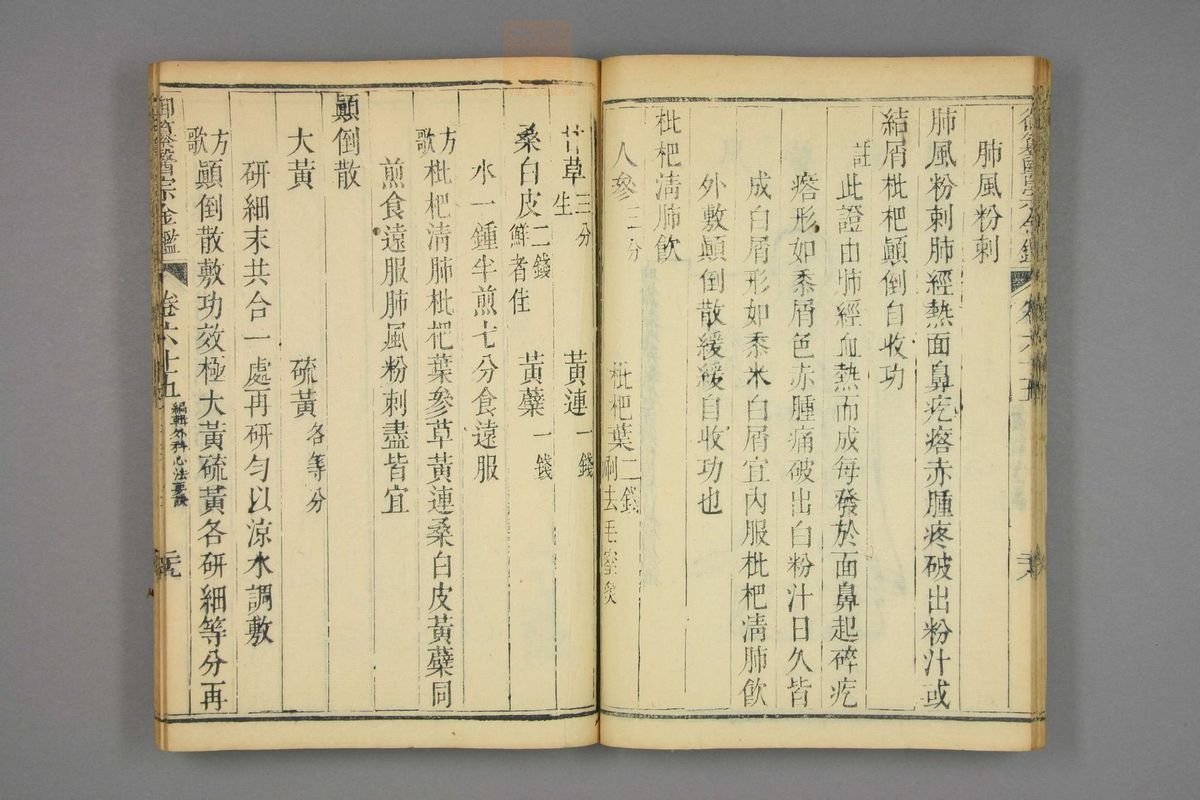 肺風粉刺
肺風粉刺肺經熱面鼻疙瘩赤腫疼破出粉汁或
結屑枇杷顛倒自收功
註
此證由肺經血熱而成每發於面鼻起碎疙
瘩形如黍屑色赤腫痛破出白粉汁日久皆
成白屑形如黍米白屑宜內服枇杷清肺飲
外敷顛倒散緩緩自收功也
枇杷清肺飲
人參三分
枇杷葉二錢刷去毛蜜炙
卷六十五
甘草三分生
黃連一錢
桑白皮二錢鮮者佳
黃蘗一錢
水一鍾半煎七分食遠服
方歌
枇杷清肺枇杷葉參草黃連桑白皮黃蘗同
煎食遠服肺風粉刺盡皆宜
顚倒散
大黃
硫黃各等分
研細末共合一處再研勻以涼水調敷
方歌
顚倒散敷功效極大黃硫黃各研細等分再
御纂醫宗金鑑
卷六十五
編輯外科心法要訣